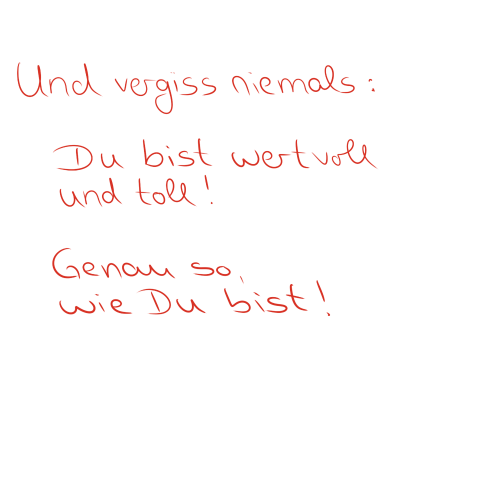 Und vergiss niemals:
Du bist wertvoll
und toll!
Genau so,
wie Du bist!